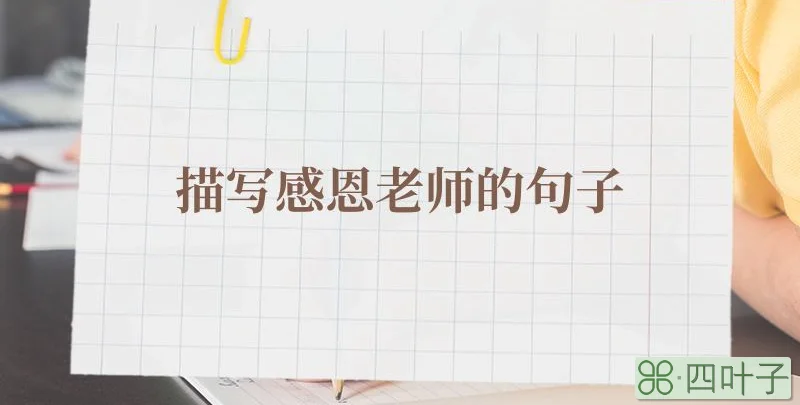 描写感恩老师的句子
四叶子